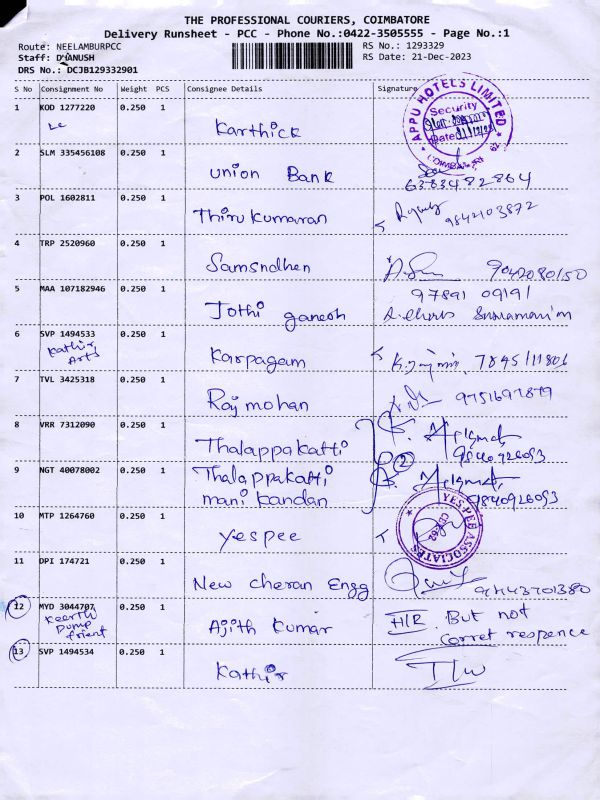 THE PROFESSIONAL COURIERS, COIMBATORE
Delivery Runsheet - PCC - Phone No.:0422-3505555 - Page No.:1
Route: NEELAMBURPCC
RS No.: 1293329
Staff: DHANUSH
RS Date: 21-Dec-2023
DRS No.: DCJB129332901
S No Consignment No Weight PCS Consignee Details Signature
APPU HOTELS LIMITED
Security
1 KOD 1277220 0.250 1 Karthick
2 SLM 335456108 0.250 1 union Bank
6383482864
3 POL 1602811 0.250 1 Thirukumaran 9842103872
4 TRP 2520960 0.250 1 Samsndhen 9042080150
5 MAA 107182946 0.250 1 Jothi ganesh 97891 09191
6 SVP 1494533 0.250 1 Karpagam
Kathir
Arts
7 TVL 3425318 0.250 1 Rajmohan 9751697879
8 VRR 7312090 0.250 1 Thalappakatti
9840926093
9 NGT 40078002 0.250 1 Thalappakatti
mani kandan 9840926093
2
10 MTP 1264760 0.250 1 yespee
YES PEE ASSOCIATES
11 DPI 174721 0.250 1 New cheran Engg
12 MYD 3044707 0.250 1 Ajith kumar H/R But not
Corret respence
13 SVP 1494534 0.250 1 Kathir